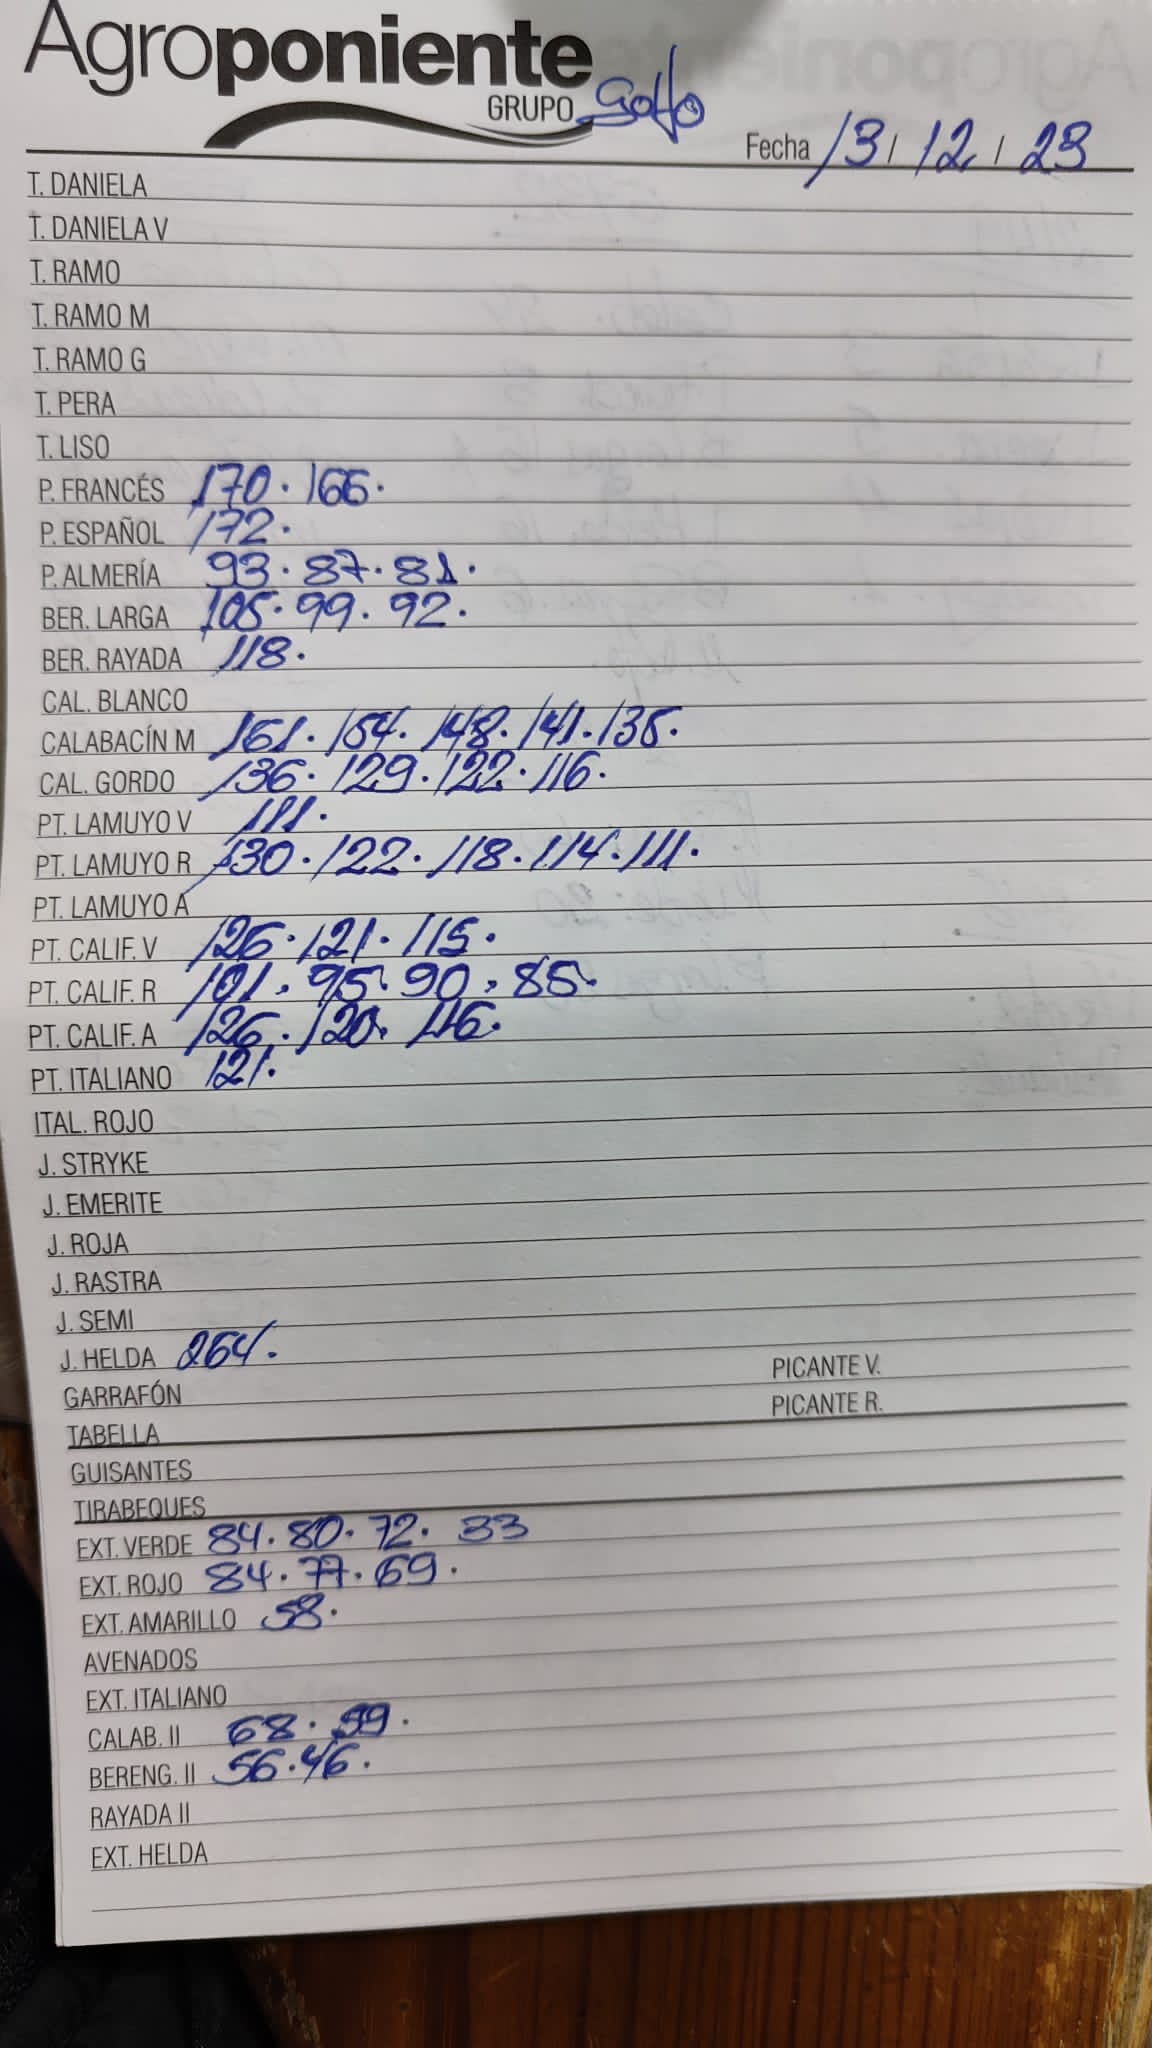 Agroponiente
GRUPO Golfo
Fecha 13 / 12 / 23
T. DANIELA
T. DANIELA V
T. RAMO
T. RAMO M
T. RAMO G
T. PERA
T. LISO
P. FRANCÉS 170 · 166 ·
P. ESPAÑOL 172 ·
P. ALMERÍA 93 · 87 · 81 ·
BER. LARGA 105 · 99 · 92 ·
BER. RAYADA 118 ·
CAL. BLANCO
CALABACÍN M 161 · 154 · 148 · 141 · 135 ·
CAL. GORDO 136 · 129 · 122 · 116 ·
PT. LAMUYO V 111 ·
PT. LAMUYO R 130 · 122 · 118 · 114 · 111 ·
PT. LAMUYO A
PT. CALIF. V 126 · 121 · 115 ·
PT. CALIF. R 101 · 95 · 90 · 85 ·
PT. CALIF. A 126 · 120 · 116 ·
PT. ITALIANO 121 ·
ITAL. ROJO
J. STRYKE
J. EMERITE
J. ROJA
J. RASTRA
J. SEMI
J. HELDA 264 ·
GARRAFÓN PICANTE V.
TABELLA PICANTE R.
GUISANTES
TIRABEQUES
EXT. VERDE 84 · 80 · 72 · 33
EXT. ROJO 84 · 77 · 69 ·
EXT. AMARILLO 58 ·
AVENADOS
EXT. ITALIANO
CALAB. II 68 ·
BERENG. II 56 · 46 ·
RAYADA II
EXT. HELDA